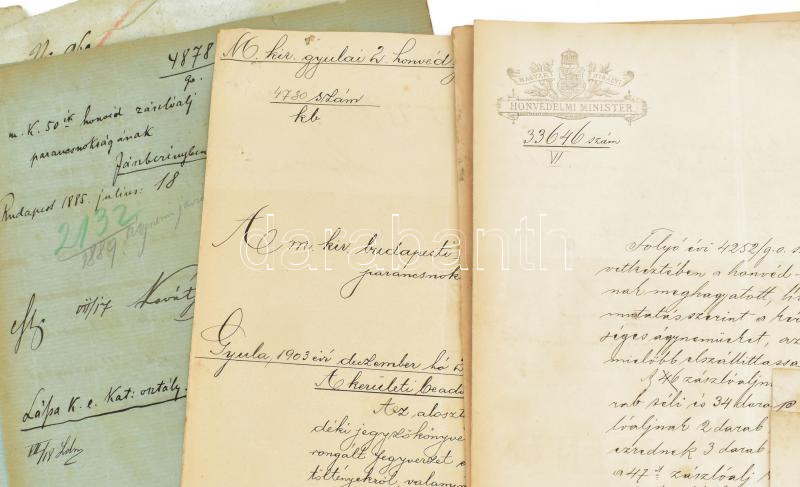 4878
go.
m. K. 50ik honvéd zászlóalj
parancsnokságának
Jánberényben
Budapest 1885. július: 18
2132
1889.
VII/17
Látta K. e. Kat: osztály.
VII/18
M. kir. gyulai 2. honvéd
4730 szám
kb.
A m. kir. budapesti
parancsnok
Gyula, 1903 évi deczember hó 2
A kerületi beadv
Az aloszt
déki jegyzőkönyve
rongált fegyverzet e
töltényekről, valamin
MAGYAR KIRÁLYI
HONVÉDELMI MINISTER
33646 szám
VI
Folyó évi 4252/g.o. s
vetkeztében a honvéd-
nak meghagyatott, h
mutatás szerint a
séges ágyneműket, az
mielőbb elszállíttassa
A 46 zászlóaljn
rab téli és 34 dara
lóaljnak 2 darab
ezrednek 3 darab
a 47t zászlóalj
darabanth